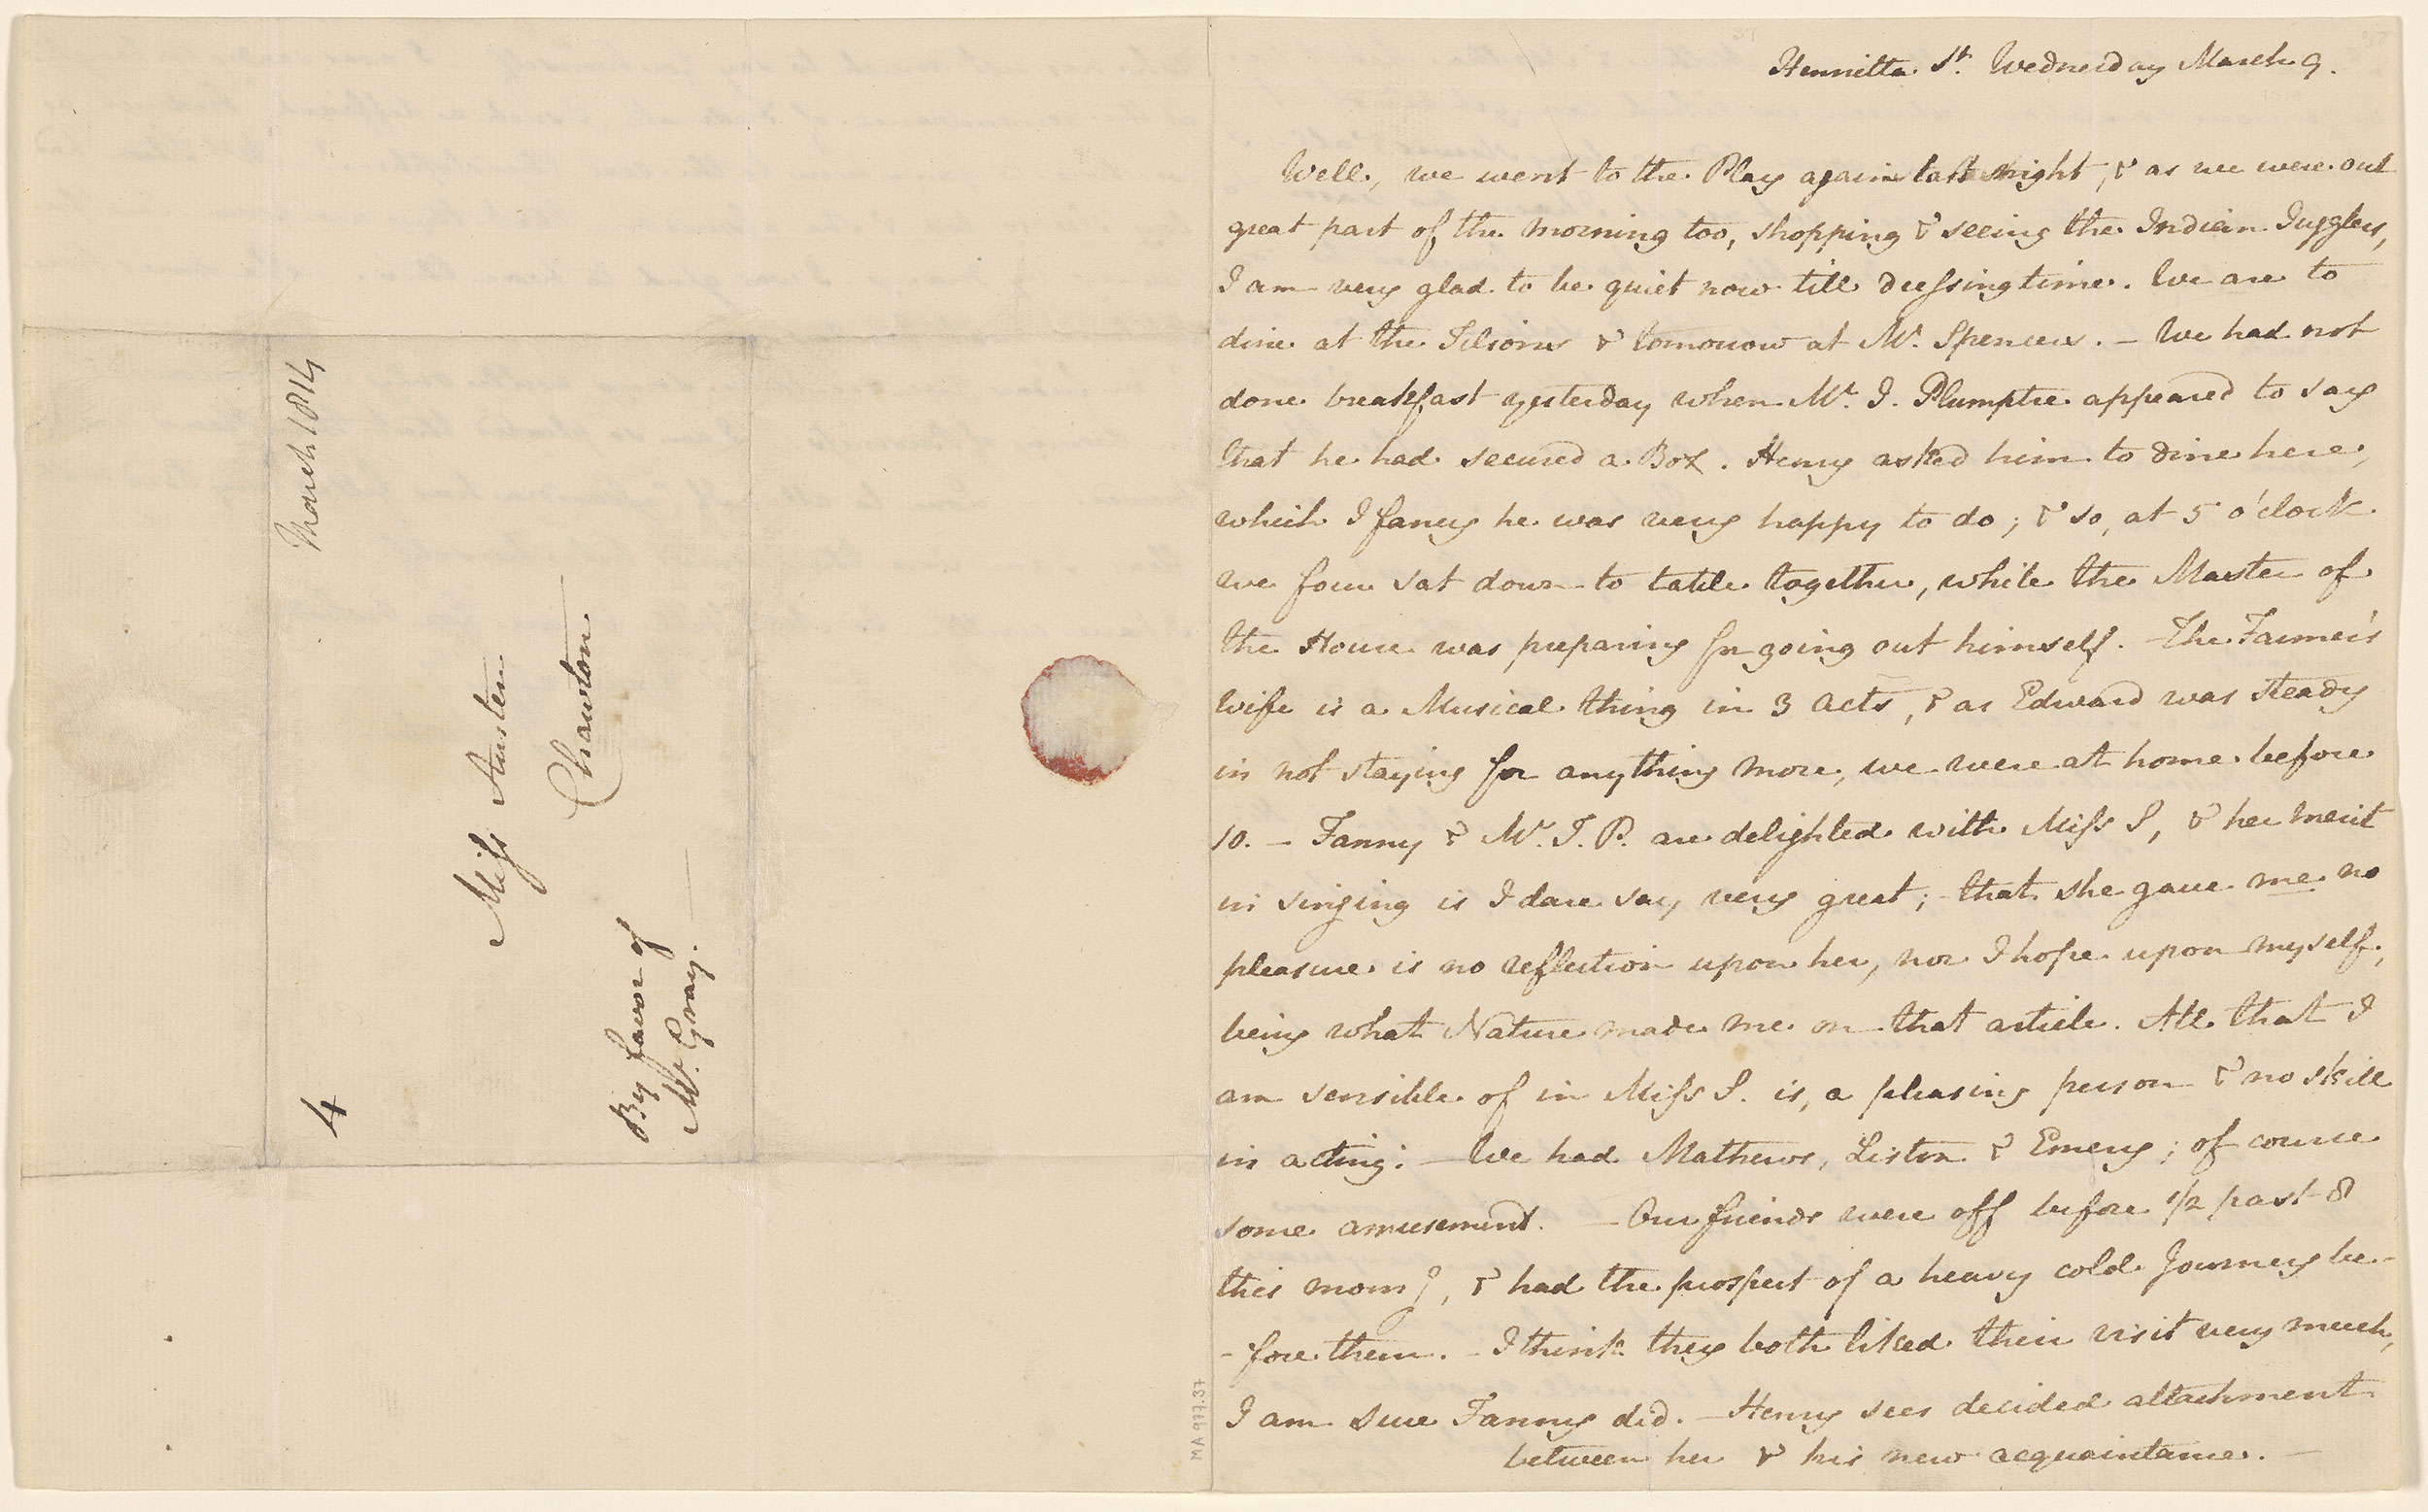 March 1814
Miss Austen
Chawton
By favor of
Mr. Gray.
4
Henrietta St. Wednesday March 9.
Well, we went to the Play again last night, & as we were out
great part of the morning too, shopping & seeing the Indian Jugglers,
I am very glad to be quiet now till dressing time. We are to
dine at the Tilsons & tomorrow at Mr. Spencers. – We had not
done breakfast yesterday when Mr. J. Plumptre appeared to say
that he had secured a Box. Henry asked him to dine here,
which I fancy he was very happy to do; & so, at 5 o'clock
we four sat down to table together, while the Master of
the House was preparing for going out himself. – The Farmer's
Wife is a Musical thing in 3 Acts, & as Edward was steady
in not staying for anything more, we were at home before
10. – Fanny & Mr. J. P. are delighted with Miss S, & her merit
in singing is I dare say very great; – that she gave me no
pleasure is no reflection upon her, nor I hope upon myself,
being what Nature made me on that article. All that I
am sensible of in Miss S. is, a pleasing person & no skill
in acting. – We had Mathews, Liston & Emery; of course
some amusement. – Our friends were off before 1/2 past 8
this morng, & had the prospect of a heavy cold Journey be-
-fore them. – I think they both liked their visit very much,
I am sure Fanny did. – Henry sees decided attachment
between her & his new acquaintance. –
MA 977.37